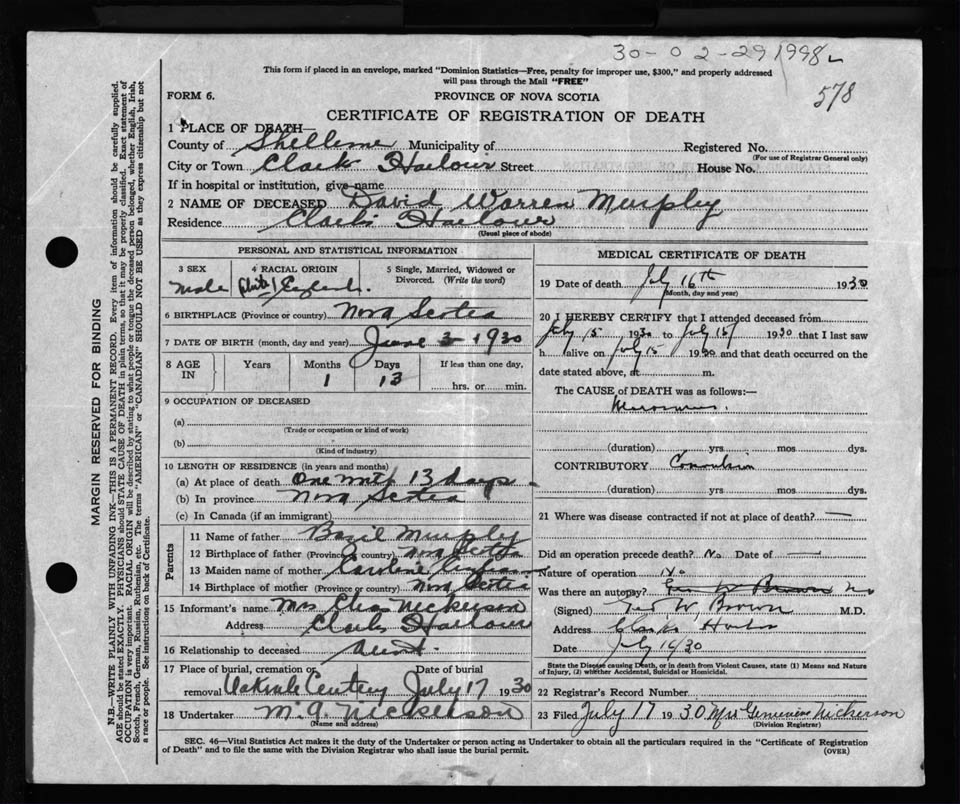 30-02-291998
578
This form if placed in an envelope, marked "Dominion Statistics—Free, penalty for improper use, $300," and properly addressed
will pass through the Mail "FREE"
FORM 6. PROVINCE OF NOVA SCOTIA
CERTIFICATE OF REGISTRATION OF DEATH
MARGIN RESERVED FOR BINDING
N.B.—WRITE PLAINLY WITH UNFADING INK—THIS IS A PERMANENT RECORD. Every item of information should be carefully supplied.
AGE should be stated EXACTLY. PHYSICIANS should STATE CAUSE OF DEATH in plain terms, so that it may be properly classified. Exact statement of
OCCUPATION is very important. RACIAL ORIGIN will be described by stating to what people or tongue the deceased person belonged, whether English, Irish,
Scotch, French, German, Russian, Ruthenian, etc. The terms "AMERICAN" or "CANADIAN" SHOULD NOT BE USED as they express citizenship but not
a race or people. See instructions on back of Certificate.
1 PLACE OF DEATH—
County of Municipality of Registered No.
(For use of Registrar General only)
City or Town Clark Harbour Street House No.
If in hospital or institution, give name
2 NAME OF DECEASED David Warren Murphy
Residence Clark's Harbour
(Usual place of abode)
PERSONAL AND STATISTICAL INFORMATION
3 SEX 4 RACIAL ORIGIN 5 Single, Married, Widowed or
Divorced. (Write the word)
Male White England.
6 BIRTHPLACE (Province or country) Nova Scotia
7 DATE OF BIRTH (month, day and year) June 3 1930
8 AGE IN Years Months Days If less than one day,
1 13 hrs. or min.
9 OCCUPATION OF DECEASED
(a)
(Trade or occupation or kind of work)
(b)
(Kind of industry)
10 LENGTH OF RESIDENCE (in years and months)
(a) At place of death One month 13 days
(b) In province Nova Scotia
(c) In Canada (if an immigrant)
Parents
11 Name of father Basil Murphy
12 Birthplace of father (Province or country) Nova Scotia
13 Maiden name of mother Caroline
14 Birthplace of mother (Province or country) Nova Scotia
15 Informant's name Mrs Nickerson
Address Clarks Harbour
16 Relationship to deceased Aunt.
17 Place of burial, cremation or Date of burial
removal July 17 1930
18 Undertaker Nickerson
(Name and address)
MEDICAL CERTIFICATE OF DEATH
19 Date of death July 16th 1930
(Month, day and year)
20 I HEREBY CERTIFY that I attended deceased from
July 15 1930 to July 15 1930 that I last saw
h alive on July 15 1930 and that death occurred on the
date stated above, at m.
The CAUSE OF DEATH was as follows:—
Marasmus.
(duration) yrs mos dys.
CONTRIBUTORY Convulsion
(duration) yrs. mos dys.
21 Where was disease contracted if not at place of death? —
Did an operation precede death? No Date of —
Nature of operation No
Was there an autopsy? No
(Signed) W. Brown M.D.
Address Clarks Harbor
Date July 16/30
State the Disease causing Death, or in death from Violent Causes, state (1) Means and Nature
of Injury, (2) whether Accidental, Suicidal or Homicidal.
22 Registrar's Record Number
23 Filed July 17 1930 Mrs Genevieve Nickerson
(Division Registrar)
SEC. 46—Vital Statistics Act makes it the duty of the Undertaker or person acting as Undertaker to obtain all the particulars required in the "Certificate of Registration
of Death" and to file the same with the Division Registrar who shall issue the burial permit. (OVER)